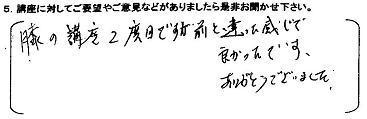 5. 講座に対してご要望やご意見などがありましたら是非お聞かせ下さい。
膝の講座2度目ですが前と違った感じで
良かったです、
ありがとうございました